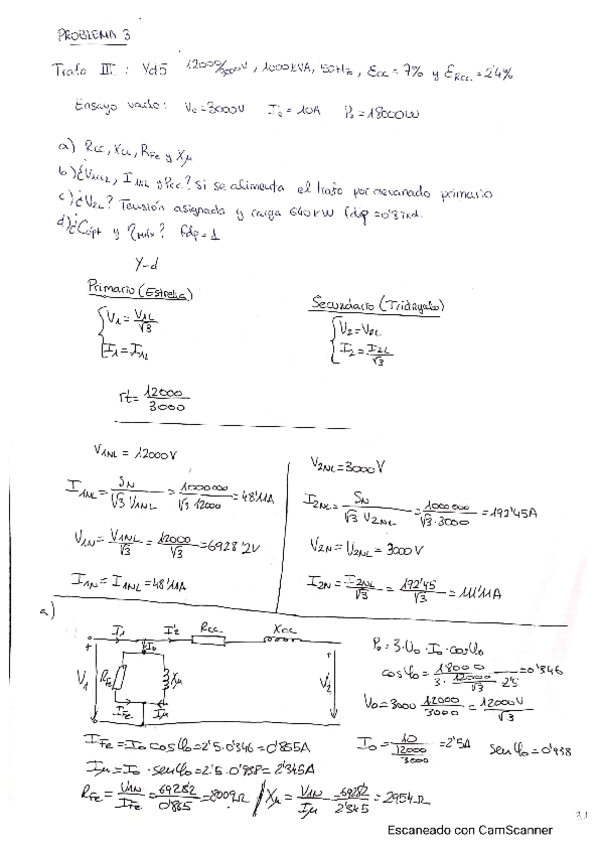 PROBLEMA 3
Trafo III: Yd5 12000/3000V, 1000kVA, 50Hz, Ecc = 7% y ERcc = 2'4%
Ensayo vacío: V0=3000V I0 = 10A P0 = 18000W
a) Rcc, Xcc, RFe y Xμ
b) ¿V1ccL, I1NL y Pcc? si se alimenta el trafo por devanado primario
c) ¿V2L? Tensión asignada y carga 640kW fdp = 0'8 ind.
d) ¿Cópt y ηmáx? fdp = 1
Y-d
Primario (Estrella)
V1 = V1L/√3
I1 = I1L
Secundario (Triángulo)
V2 = V2L
I2 = I2L/√3
rt = 12000/3000
V1NL = 12000V
I1NL = SN/√3 V1NL = 1000000/√3 12000 = 48'11A
V1N = V1NL/√3 = 12000/√3 = 6928'2V
I1N = I1NL = 48'11A
V2NL = 3000V
I2NL = SN/√3 V2NL = 1000000/√3·3000 = 192'45A
V2N = V2NL = 3000V
I2N = I2NL/√3 = 192'45/√3 = 111'11A
a)
I1 I'2 Rcc Xcc
I0
V1 RFe Xμ V'2
IFe Iμ
P0 = 3·V0·I0·cosφ0
cosφ0 = 18000/3·12000/√3·2'5 = 0'346
V0 = 3000 12000/3000 = 12000V/√3
I0 = 10/12000/3000 = 2'5A senφ0 = 0'938
IFe = I0 cosφ0 = 2'5·0'346 = 0'865A
Iμ = I0·senφ0 = 2'5·0'938 = 2'345A
RFe = V1N/IFe = 6928'2/0'865 = 8009Ω / Xμ = V1N/Iμ = 6928'2/2'345 = 2954Ω
Escaneado con CamScanner